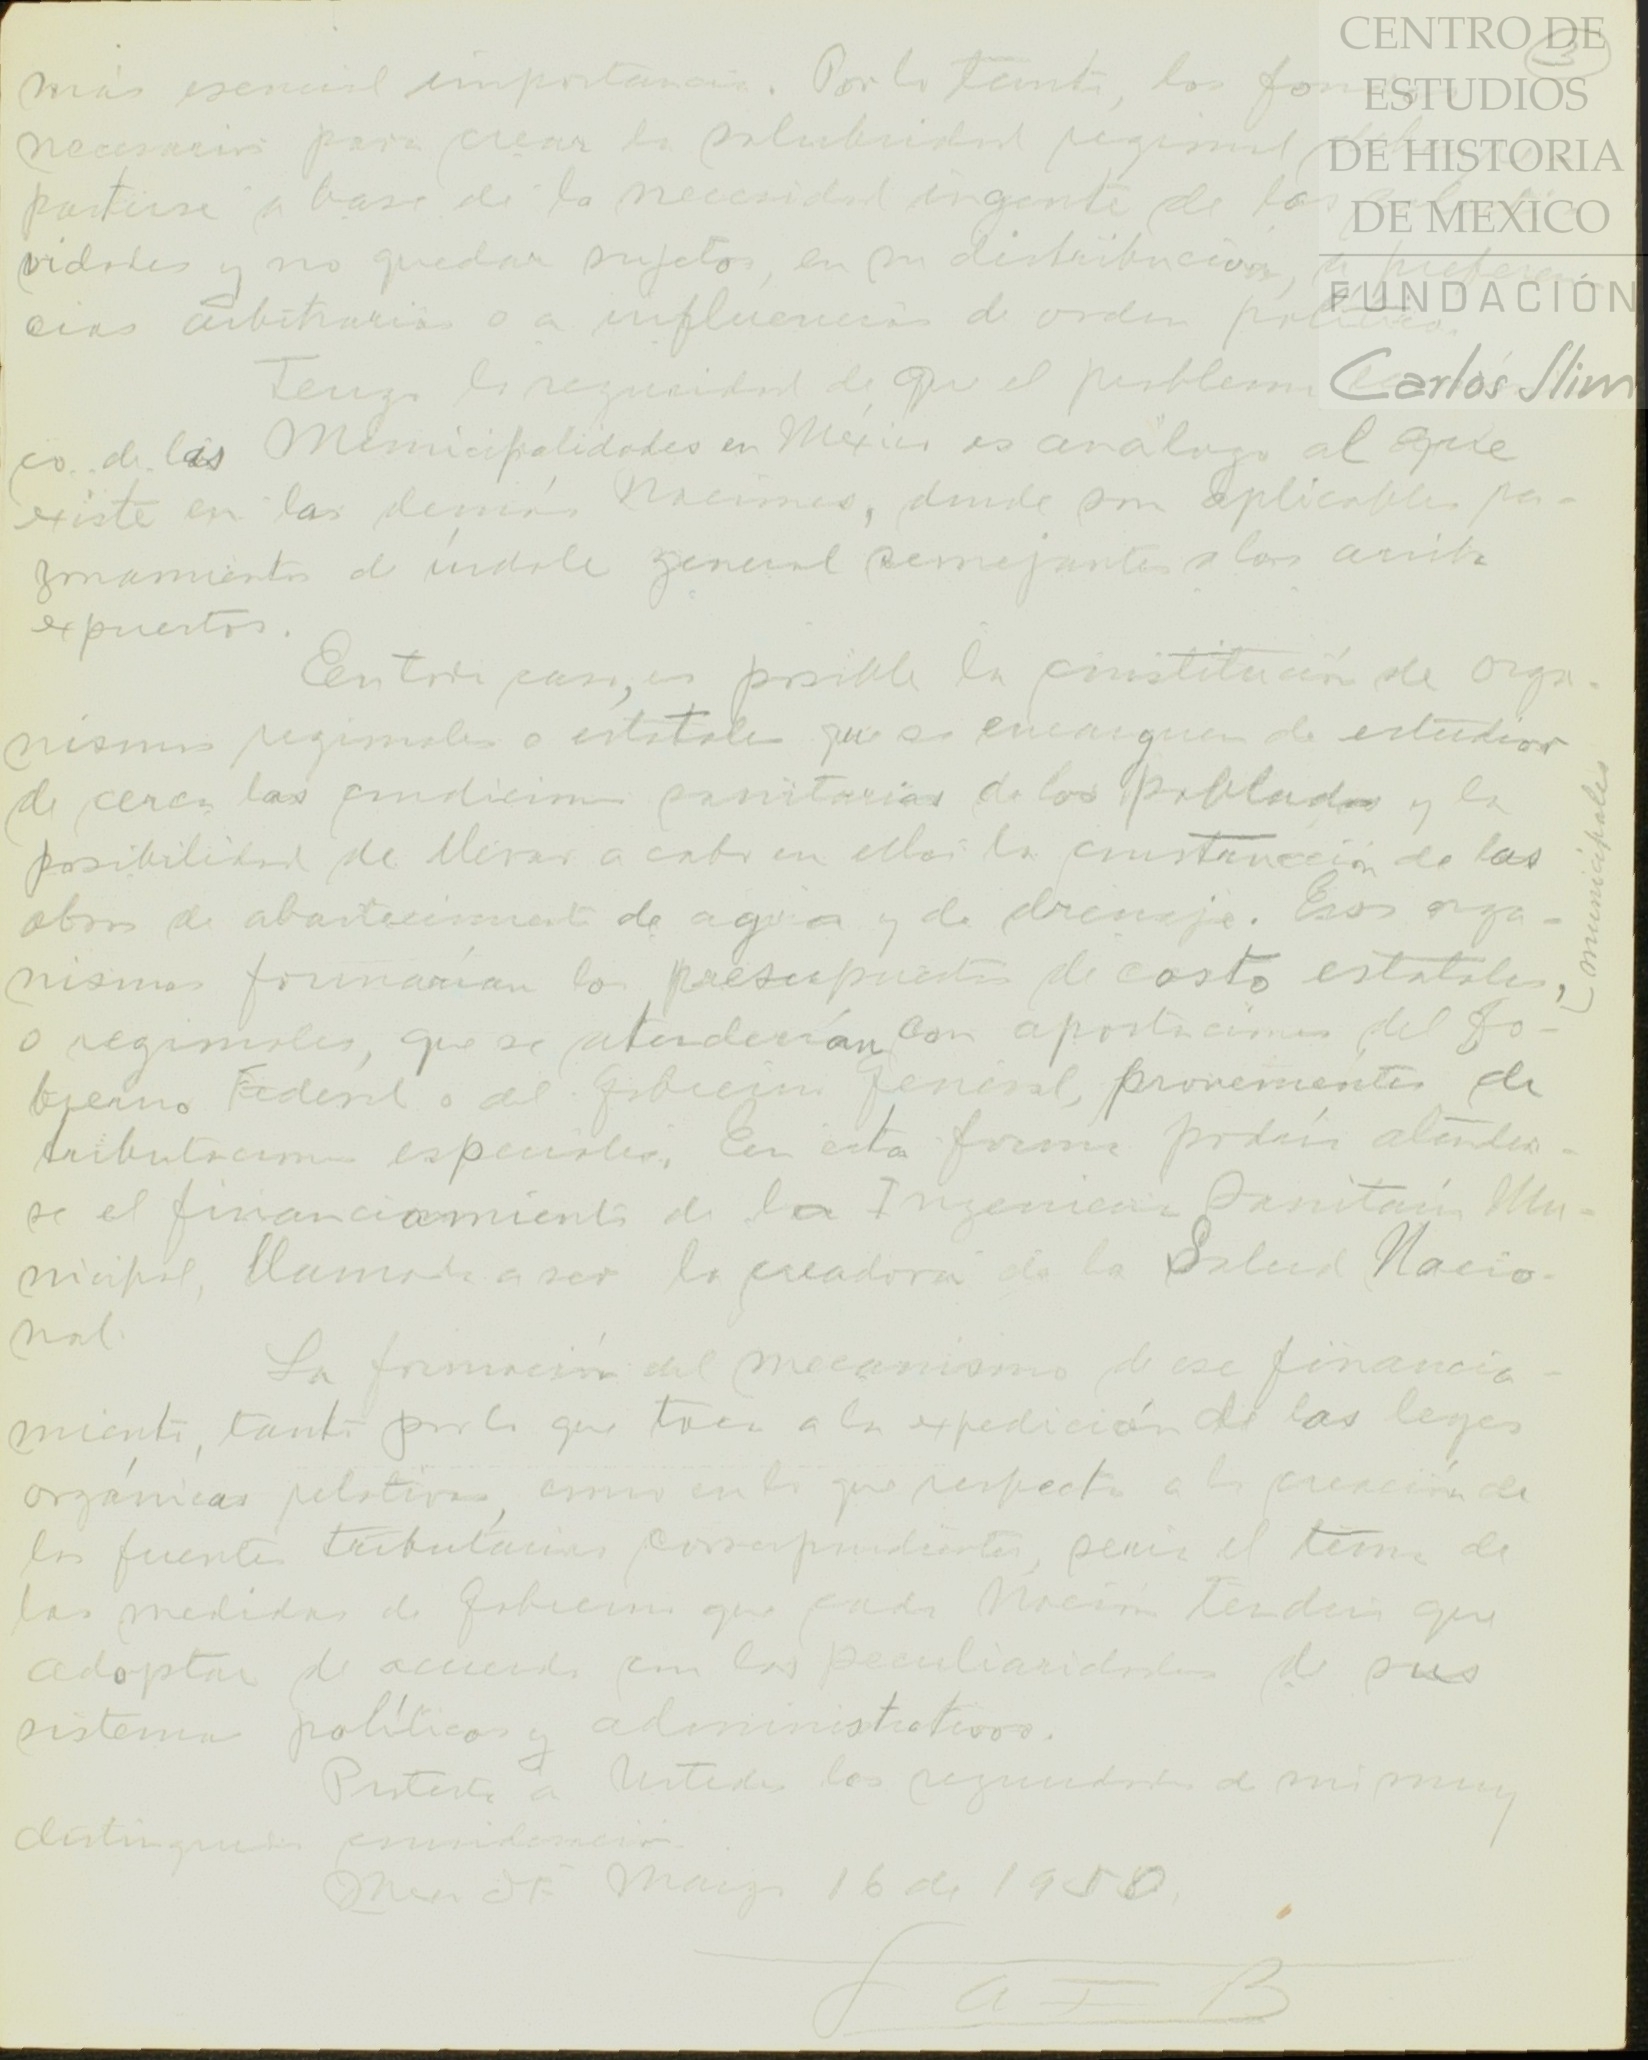 CENTRO DE
ESTUDIOS
DE HISTORIA
DE MEXICO
FUNDACIÓN
Carlos Slim
3
más esencial importancia. Por lo tanto, los fondos
necesarios para crear la salubridad regional deben re-
partirse a base de la necesidad ingente de las colecti-
vidades y no quedar sujetos, en su distribución, a preferen-
cias arbitrarias o a influencias de orden político.
Tengo la seguridad de que el problema
co de las Municipalidades en México es análogo al que
existe en las demás Naciones, donde son aplicables ra-
zonamientos de índole general semejantes a los arriba
expuestos.
En todo caso, es posible la constitución de orga-
nismos regionales o estatales que se encarguen de estudiar
de cerca las condiciones sanitarias de los poblados y la
posibilidad de llevar a cabo en ellos la construcción de las
obras de abastecimiento de agua y de drenaje. Esos orga-
nismos formarían los presupuestos de costo estatales,
(municipales
o regionales, que se atenderían con aportaciones del Go-
bierno Federal o del Gobierno General, provenientes de
tributaciones especiales. En esta forma podría atender-
se el financiamiento de la Ingeniería Sanitaria Mu-
nicipal, llamada a ser la creadora de la Salud Nacio-
nal.
La formación del mecanismo de ese financia-
miento, tanto por lo que toca a la expedición de las leyes
orgánicas relativas, como en lo que respecta a la creación de
las fuentes tributarias correspondientes, sería el tema de
las medidas de Gobierno que cada Nación tendría que
adoptar de acuerdo con las peculiaridades de sus
sistemas políticos y administrativos.
Protesto a Ustedes las seguridades de mi muy
distinguida consideración.
Mex DF Marzo 16 de 1950.